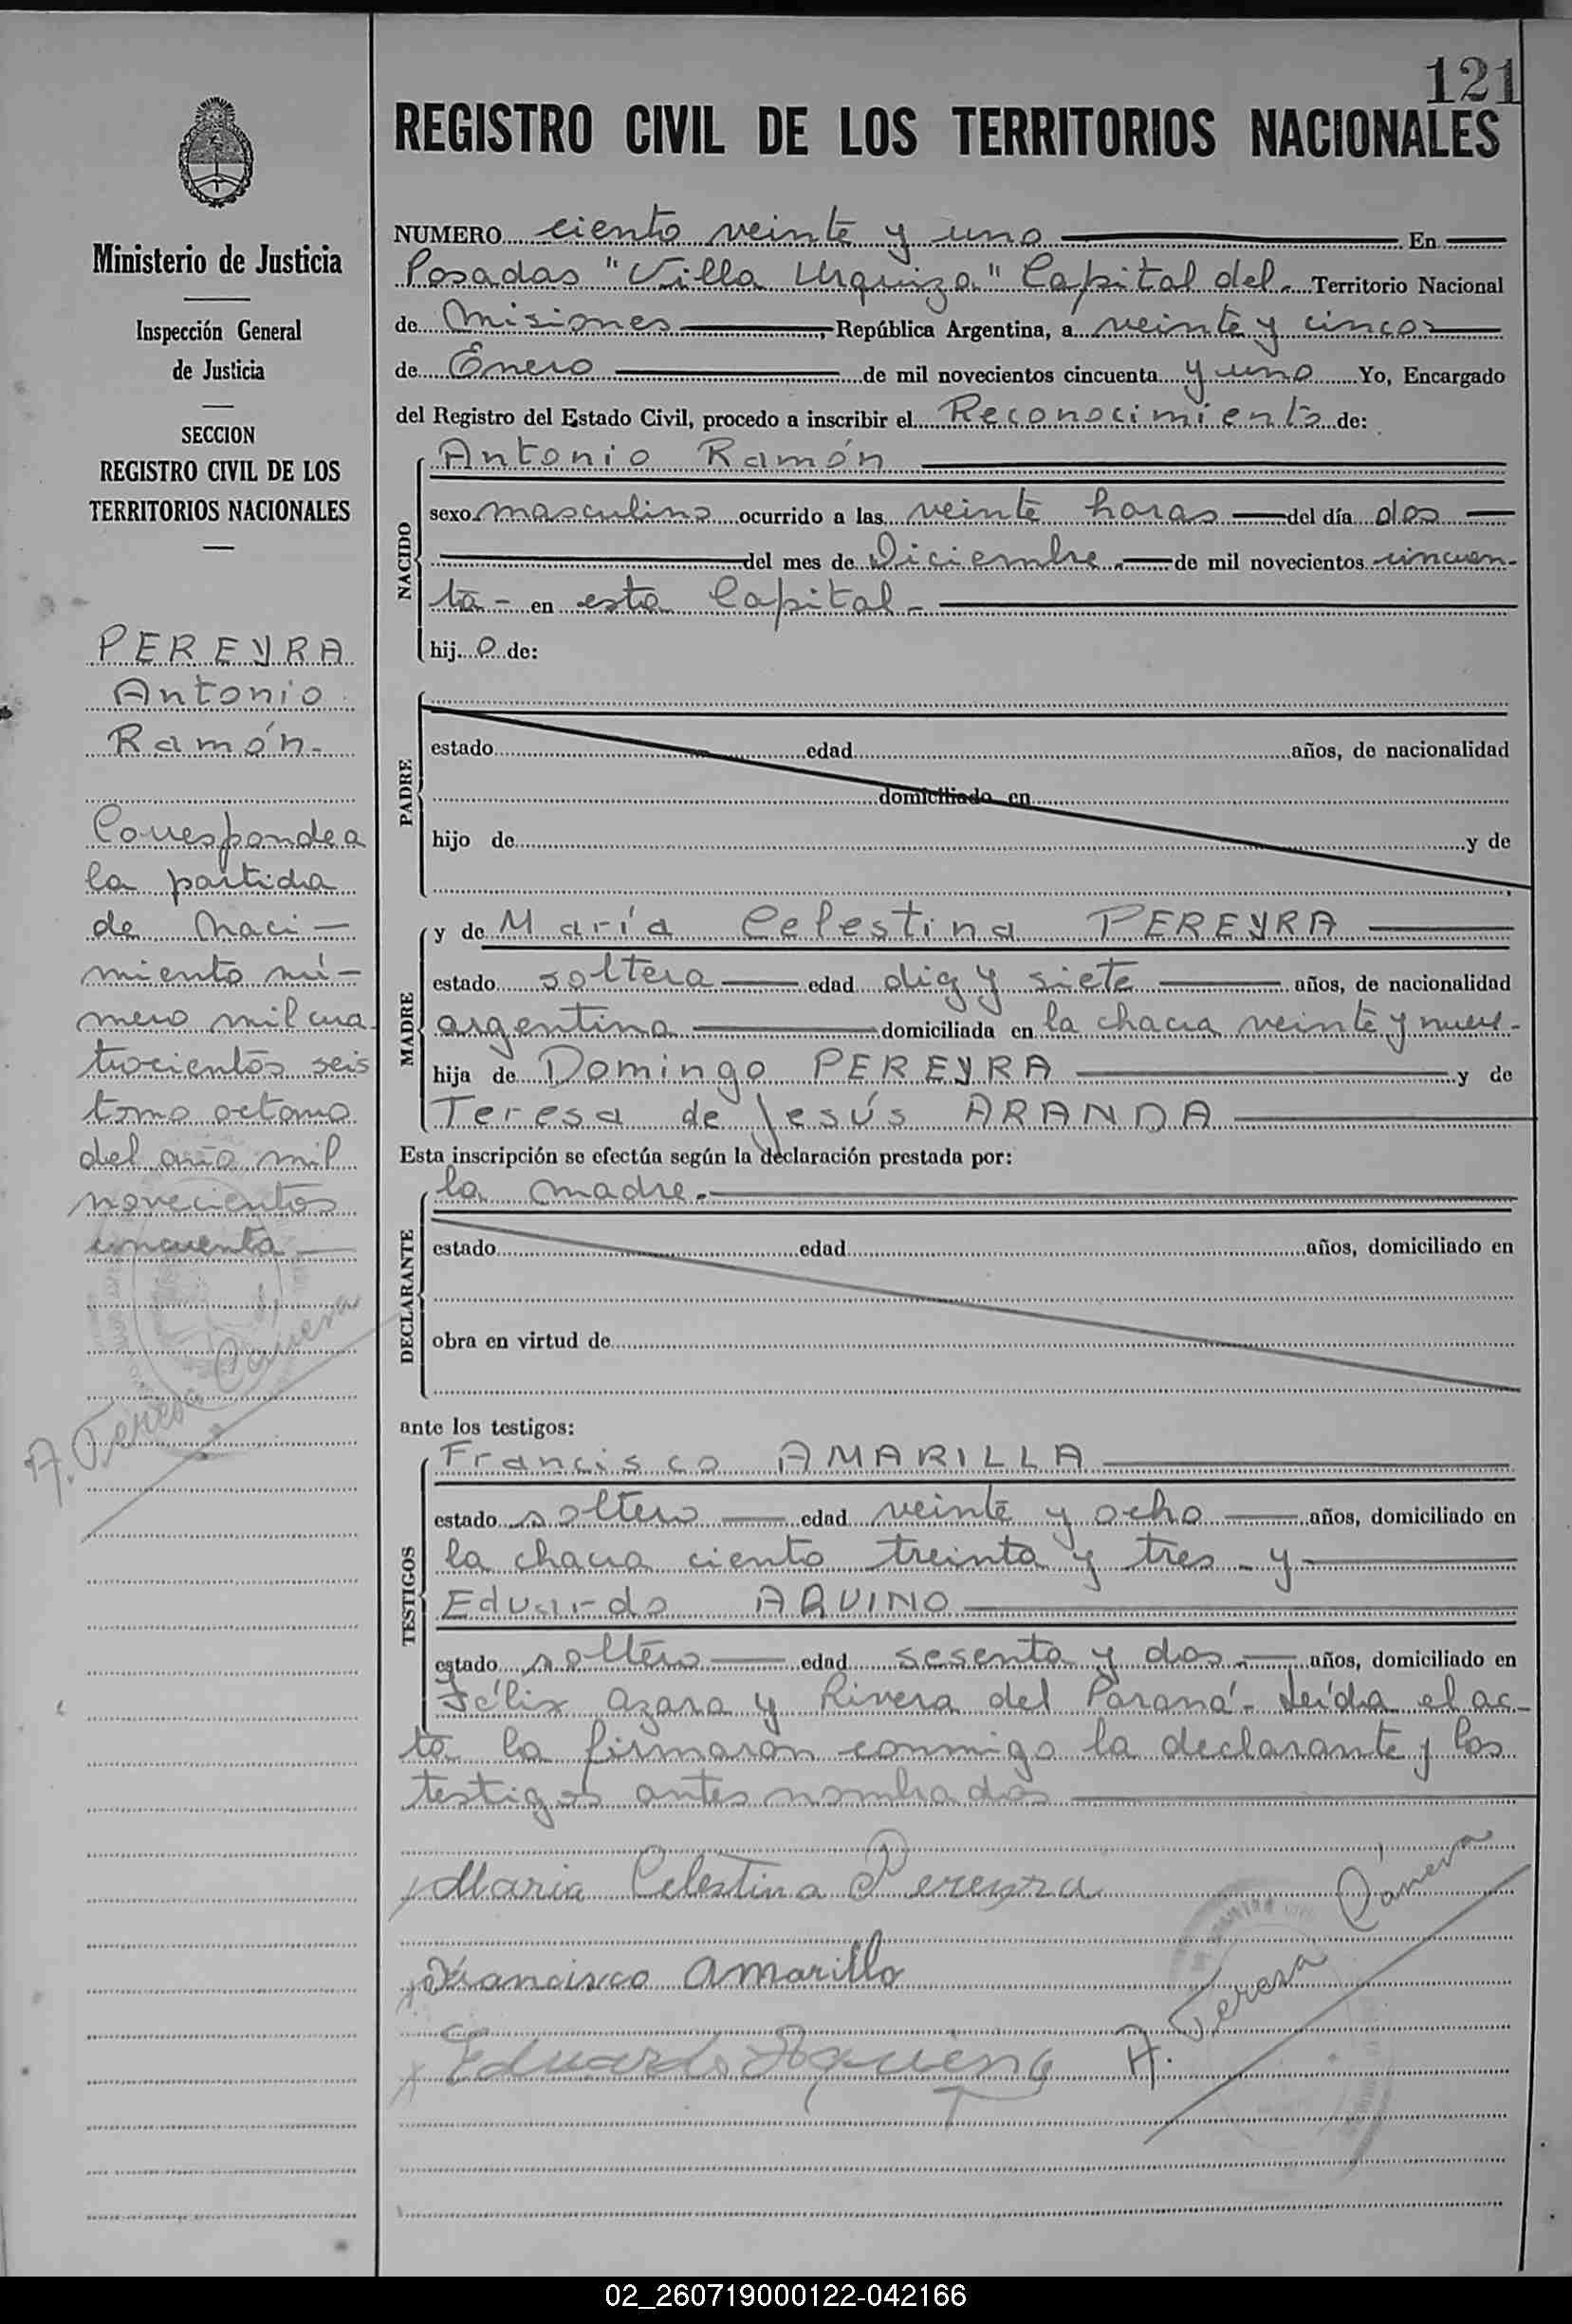 121
REGISTRO CIVIL DE LOS TERRITORIOS NACIONALES
Ministerio de Justicia
Inspección General
de Justicia
SECCION
REGISTRO CIVIL DE LOS
TERRITORIOS NACIONALES
PEREYRA
Antonio
Ramón.
Corresponde a
la partida
de naci-
miento nú-
mero mil cua
trocientos seis
tomo octavo
del año mil
novecientos
cincuenta
A. Teresa Cánera
NUMERO ciento veinte y uno En
Posadas "Villa Urquiza" Capital del Territorio Nacional
de Misiones, República Argentina, a veinte y cinco
de Enero de mil novecientos cincuenta y uno Yo, Encargado
del Registro del Estado Civil, procedo a inscribir el Reconocimiento de:
NACIDO
Antonio Ramón
sexo masculino ocurrido a las veinte horas del día dos
del mes de Diciembre de mil novecientos cincuen-
ta - en esta Capital -
hij o de:
PADRE
estado edad años, de nacionalidad
domiciliado en
hijo de y de
MADRE
y de María Celestina PEREYRA
estado soltera edad diez y siete años, de nacionalidad
argentina domiciliada en la chacra veinte y nueve-
hija de Domingo PEREYRA y de
Teresa de Jesús ARANDA
Esta inscripción se efectúa según la declaración prestada por:
DECLARANTE
la madre.
estado edad años, domiciliado en
obra en virtud de
ante los testigos:
TESTIGOS
Francisco AMARILLA
estado soltero edad veinte y ocho años, domiciliado en
la chacra ciento treinta y tres - y
Eduardo AQUINO
estado soltero edad sesenta y dos.- años, domiciliado en
Félix Azara y Rivera del Paraná - Leída el ac-
ta la firmaron conmigo la declarante y los
testigos antes nombrados
Maria Celestina Pereyra
Francisco Amarilla
Eduardo
A. Teresa Cánera
02_260719000122-042166